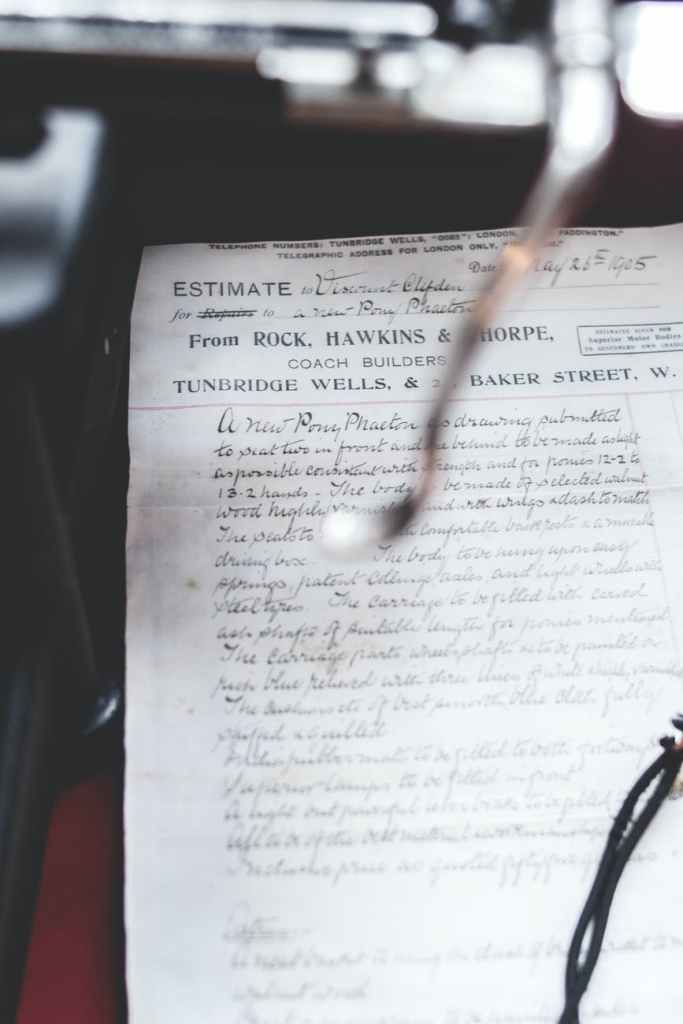 TELEPHONE NUMBERS: TUNBRIDGE WELLS, "0085"; LONDON, PADDINGTON."
TELEGRAPHIC ADDRESS FOR LONDON ONLY,
Date May 26th 1905
ESTIMATE to Viscount Clifden
for Repairs to a new Pony Phaeton
From ROCK, HAWKINS & THORPE,
COACH BUILDERS
TUNBRIDGE WELLS, & BAKER STREET, W.
Superior Motor Bodies
A new Pony Phaeton as drawing submitted
to seat two in front and one behind to be made as light
as possible consistent with strength and for ponies 12-2 to
13-2 hands - The body to be made of selected walnut
wood highly varnished and with wings & dash to match
The seats to comfortable back rests & a movable
driving box. The body to be hung upon easy
springs, patent collinge axles, and light wheels with
steel tyres. The carriage to be fitted with curved
ash shafts of suitable length for ponies mentioned
The carriage parts wheels, shafts &c to be painted a
rich blue relieved with three lines of white
The cushions etc of best smooth blue cloth fully
quilled
Indiarubber mats to be fitted to both footways
Superior lamps to be fitted in front
A light but powerful to be fitted
All to be of the best material & workmanship
price as quoted fifty five
walnut wood